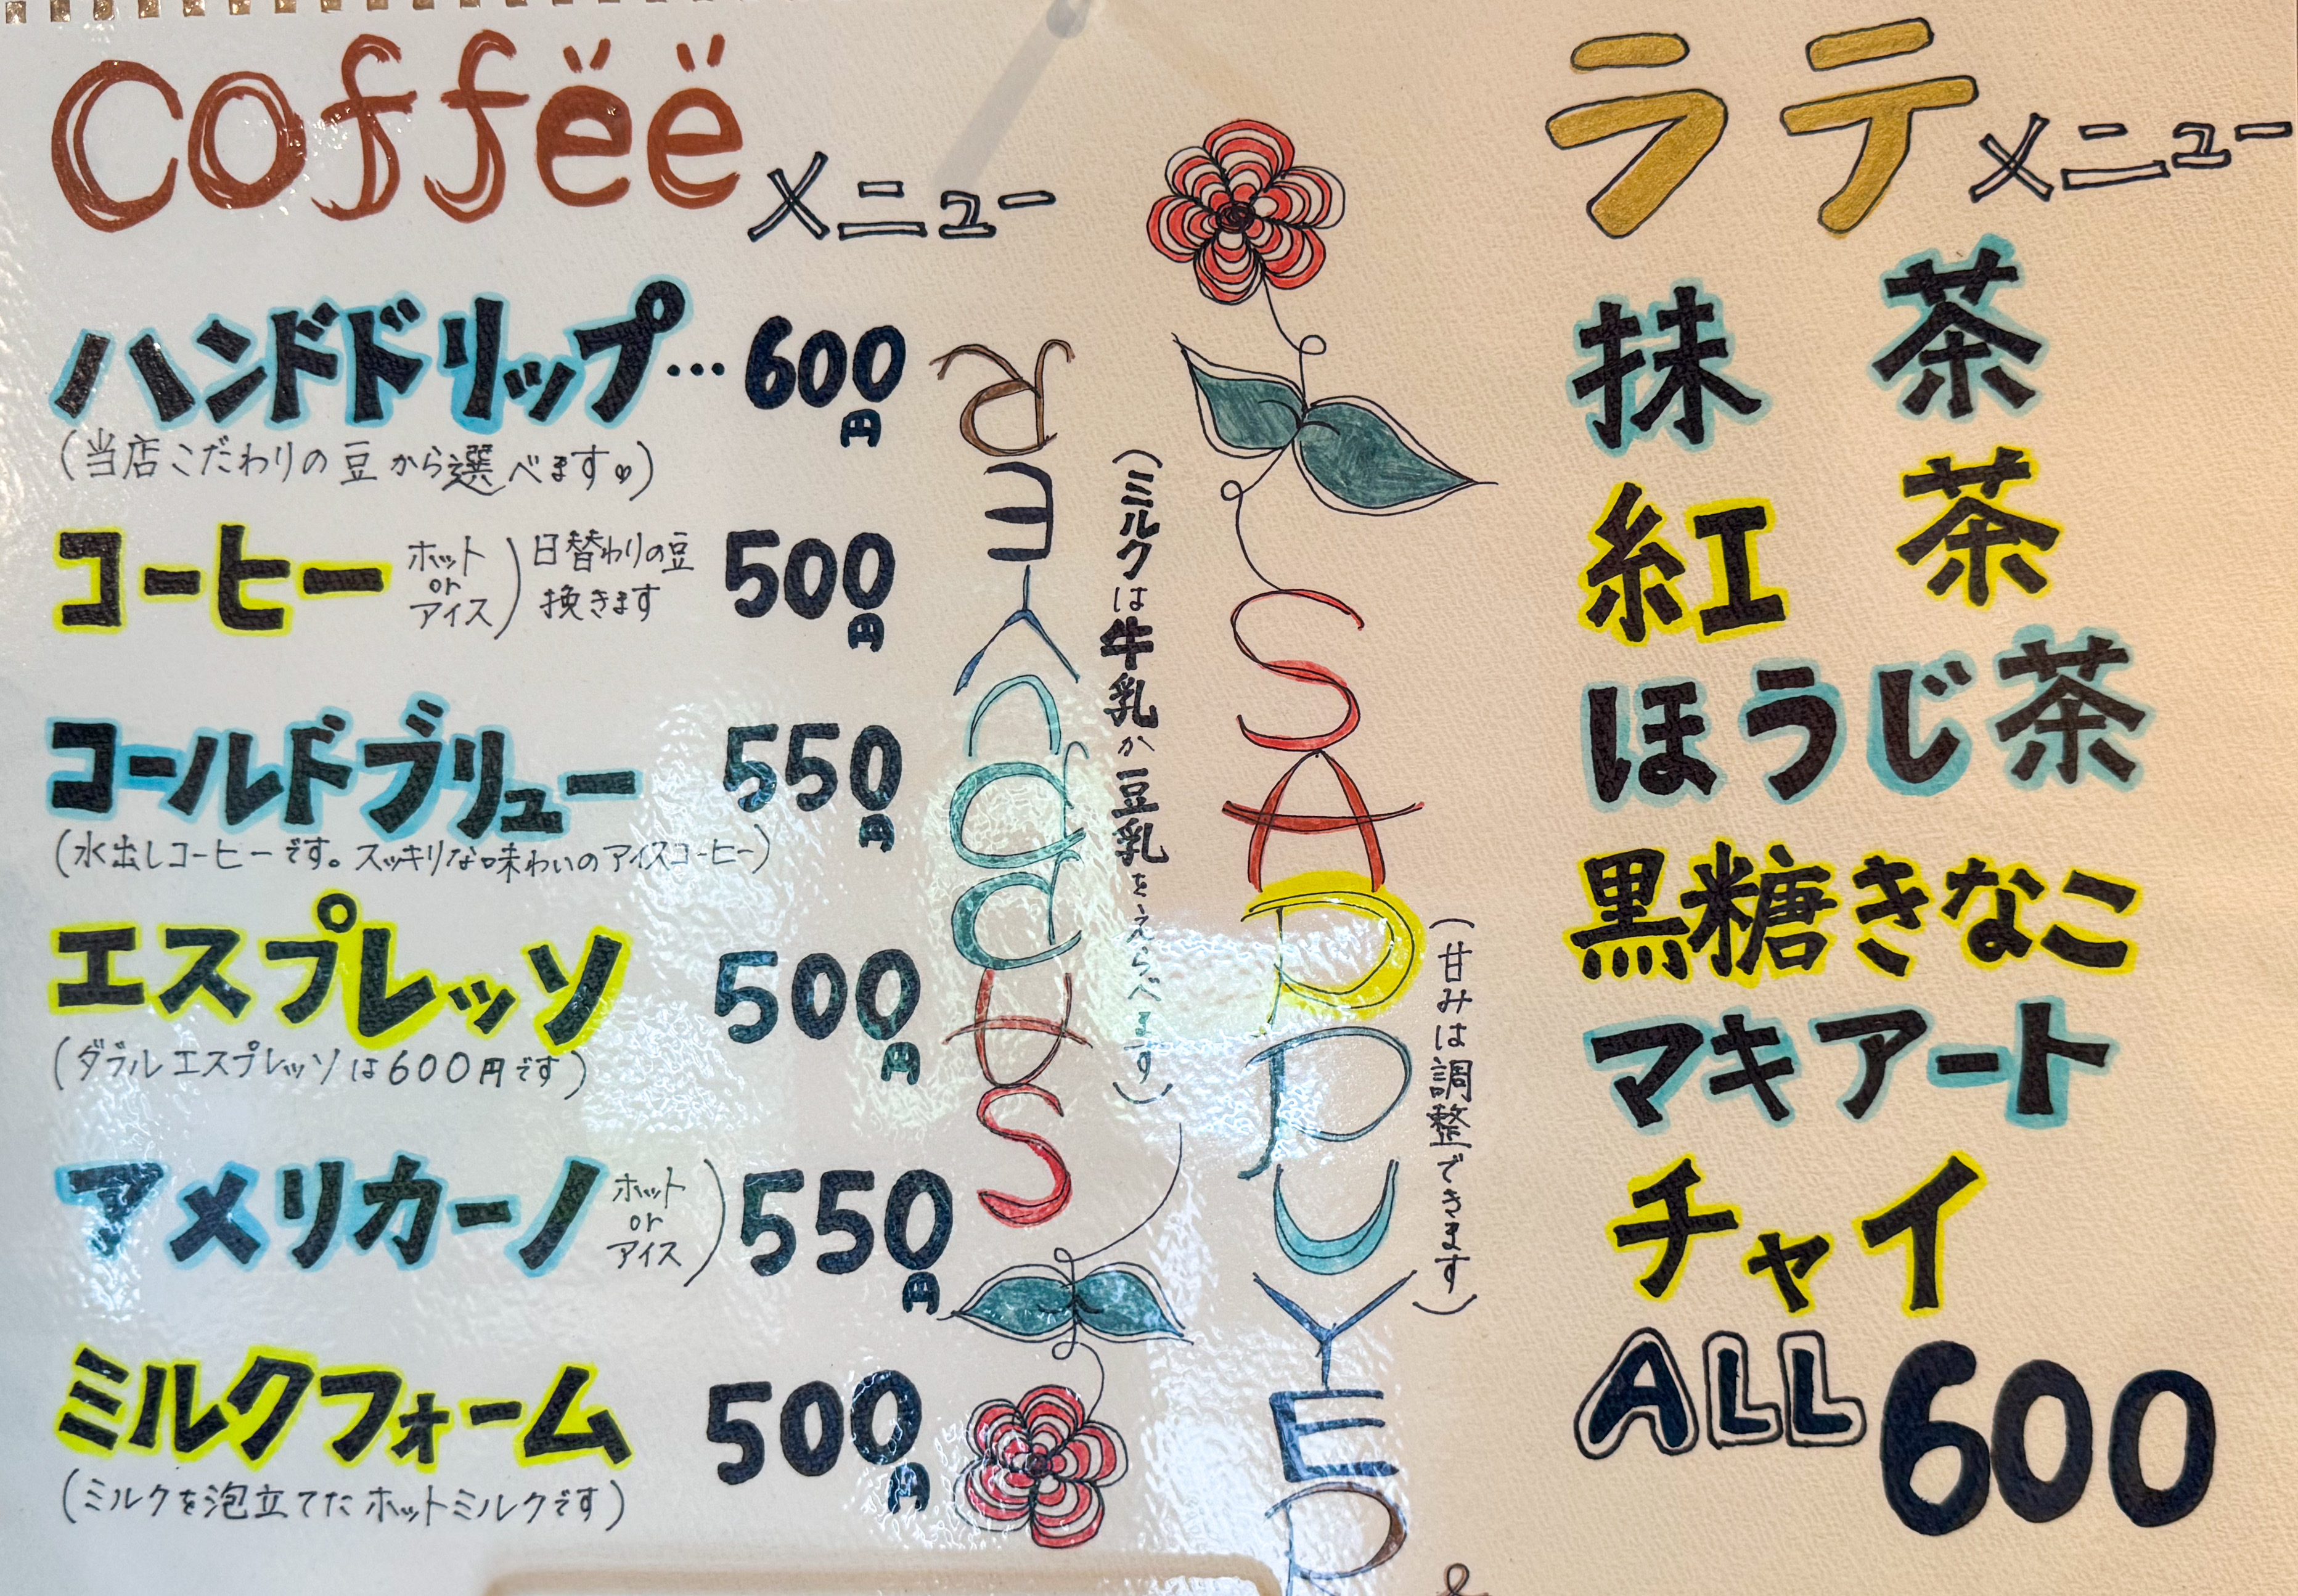 Coffëë メニュー
ハンドドリップ…600円
(当店こだわりの豆から選べます♡)
コーヒー ホットorアイス) 日替わりの豆挽きます 500円
コールドブリュー 550円
(水出しコーヒーです。スッキリな味わいのアイスコーヒー)
エスプレッソ 500円
(ダブルエスプレッソは600円です)
アメリカーノ ホットorアイス) 550円
ミルクフォーム 500円
(ミルクを泡立てたホットミルクです)
(ミルクは牛乳か豆乳をえらべます)
SAPPUYER
(甘みは調整できます)
ラテメニュー
抹茶
紅茶
ほうじ茶
黒糖きなこ
マキアート
チャイ
ALL 600